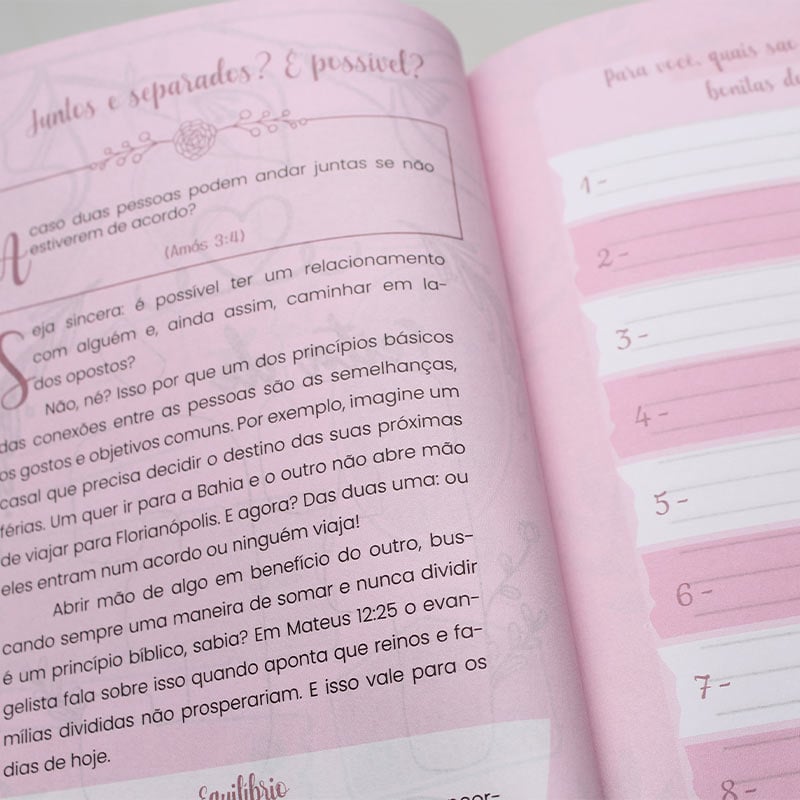 Juntos e separados? É possível?
Acaso duas pessoas podem andar juntas se não
estiverem de acordo?
(Amós 3:4)
Seja sincera: é possível ter um relacionamento
com alguém e, ainda assim, caminhar em la-
dos opostos?
Não, né? Isso por que um dos princípios básicos
das conexões entre as pessoas são as semelhanças,
os gostos e objetivos comuns. Por exemplo, imagine um
casal que precisa decidir o destino das suas próximas
férias. Um quer ir para a Bahia e o outro não abre mão
de viajar para Florianópolis. E agora? Das duas uma: ou
eles entram num acordo ou ninguém viaja!
Abrir mão de algo em benefício do outro, bus-
cando sempre uma maneira de somar e nunca dividir
é um princípio bíblico, sabia? Em Mateus 12:25 o evan-
gelista fala sobre isso quando aponta que reinos e fa-
mílias divididas não prosperariam. E isso vale para os
dias de hoje.
Equilíbrio
Para você, quais são
bonitas
1-
2-
3-
4-
5-
6-
7-
8-